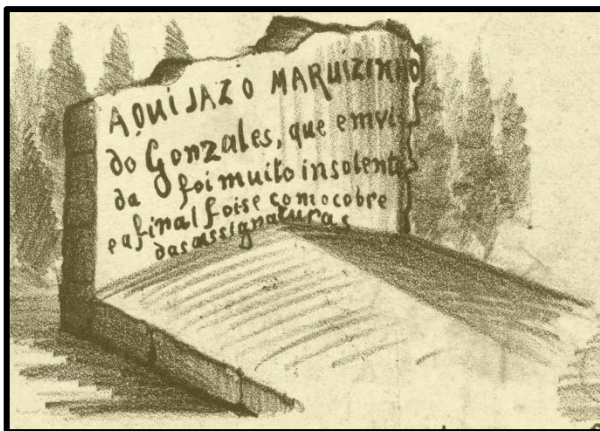 AQUI JAZ O MARUIZINHO
do Gonzales, que em vi-
da foi muito insolente
e afinal foise com o cobre
das assignaturas